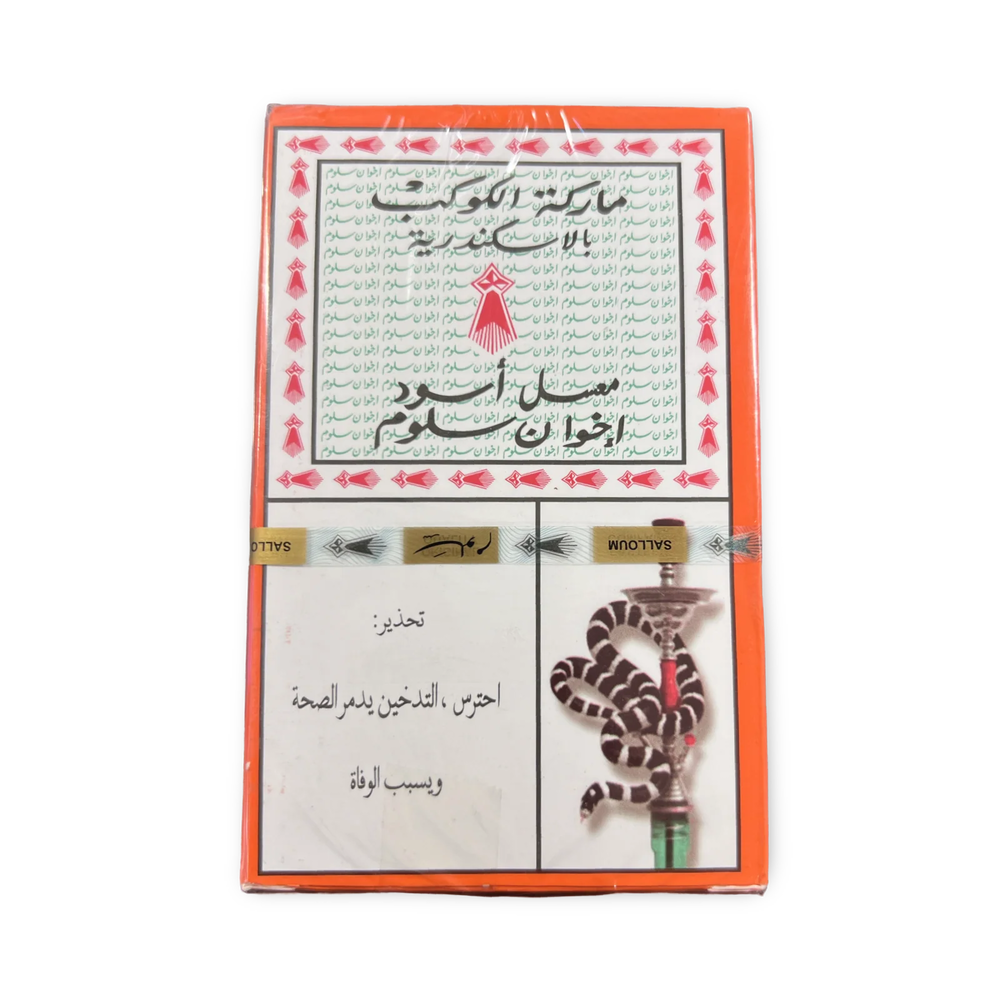 ماركة الكوكب
بالاسكندرية
معسل أسود
إخوان سلوم
SALLOUM
سلوم
SALLO
تحذير:
احترس ، التدخين يدمر الصحة
ويسبب الوفاة